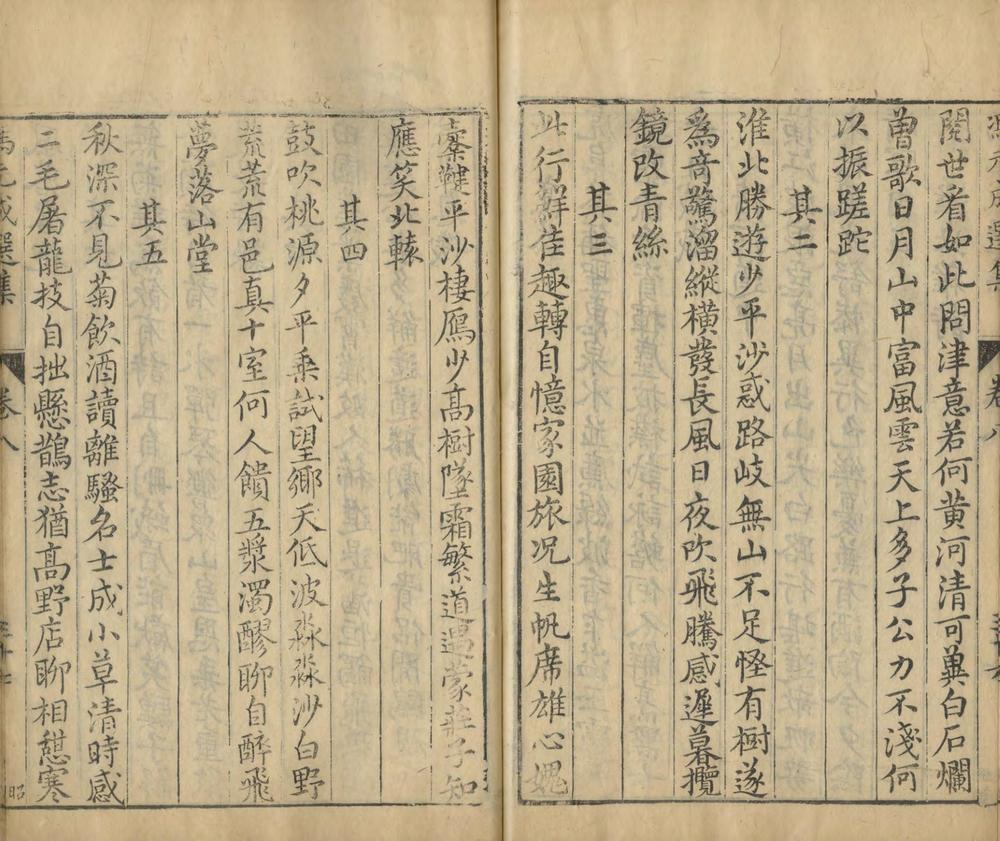 閱世看如此問津意若何黃河清可冀白石爛
曾歌日月山中富風雲天上多子公力不淺何
以振蹉跎
其二
淮北勝遊少平沙惑路岐無山不足怪有樹遂
為奇驚溜縱橫發長風日夜吹飛騰感遲暮攬
鏡改青絲
其三
此行鮮佳趣轉自憶家園旅況生帆席雄心媿
櫜鞬平沙棲鴈少高樹墜霜繁道遇蒙莊子知
應笑北轅
其四
鼓吹桃源夕平乘試望鄉天低波淼淼沙白野
荒荒有邑真十室何人饋五漿濁醪聊自醉飛
夢落山堂
其五
秋深不見菊飲酒讀離騷名士成小草清時感
二毛屠龍技自拙懸鵲志猶高野店聊相憇寒
馮元成選集 卷八